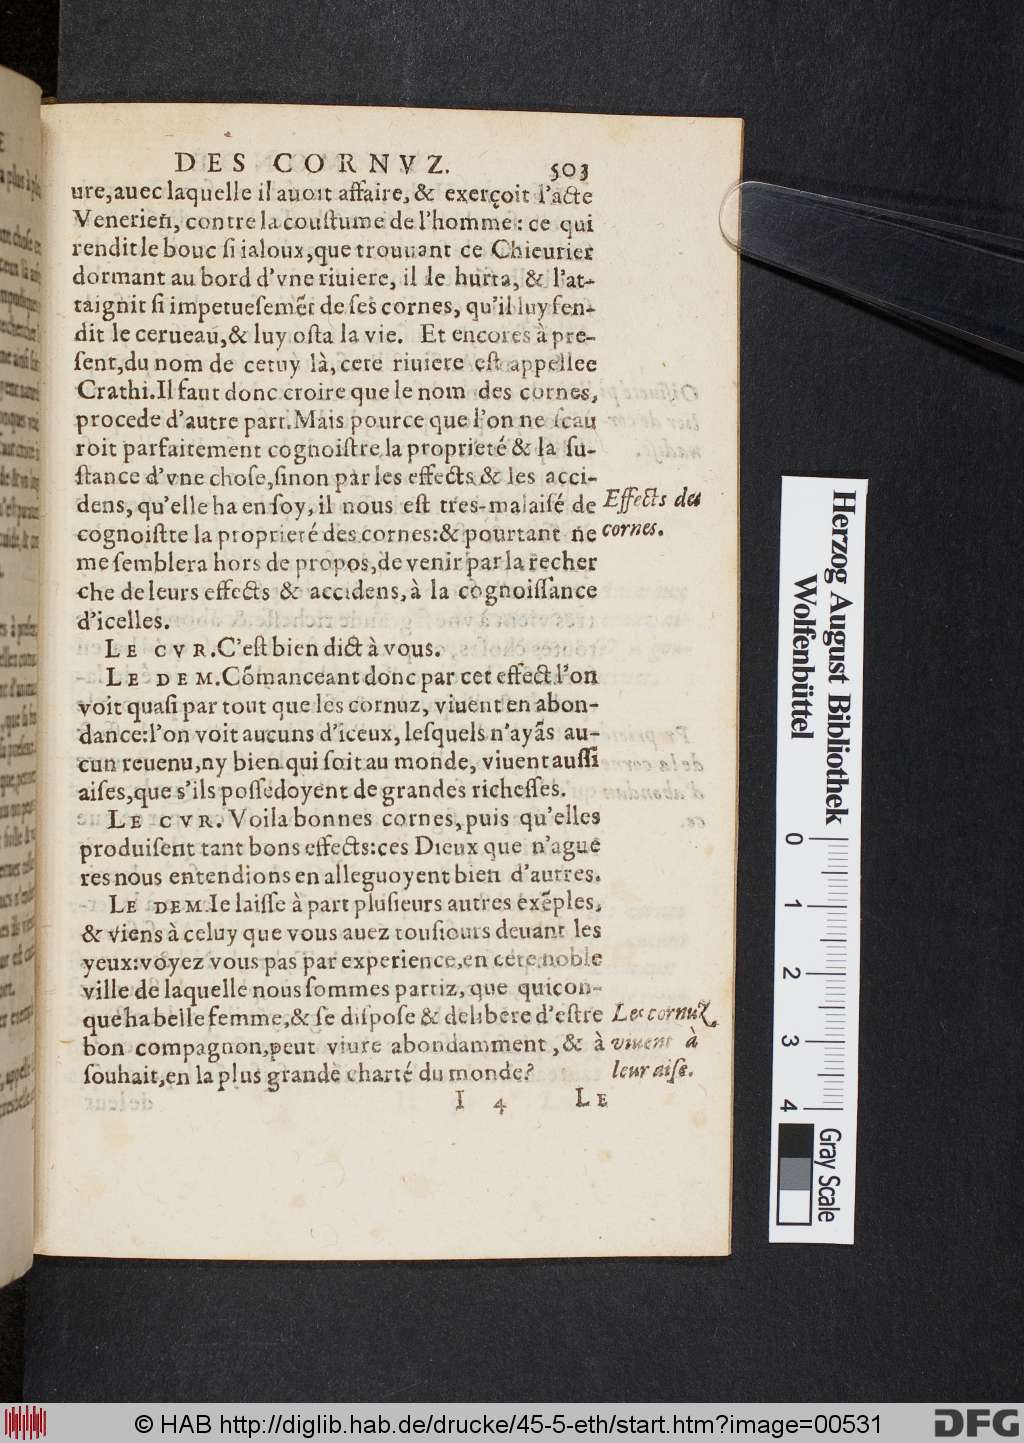 DES CORNVZ. 503
ure, auec laquelle il auoit affaire, & exerçoit l'acte
Venerien, contre la couſtume de l'homme: ce qui
rendit le bouc ſi ialoux, que trouuant ce Chieurier
dormant au bord d'vne riuiere, il le hurta, & l'at-
taignit ſi impetueſemēt de ſes cornes, qu'il luy fen-
dit le cerueau, & luy oſta la vie. Et encores à pre-
ſent, du nom de cetuy là, cete riuiere eſt appellee
Crathi. Il faut donc croire que le nom des cornes,
procede d'autre part. Mais pource que l'on ne ſcau
roit parfaitement cognoiſtre la proprieté & la ſu-
ſtance d'vne choſe, ſinon par les effects & les acci-
dens, qu'elle ha en ſoy, il nous eſt tres-malaiſé de
cognoiſtre la proprieté des cornes: & pourtant ne
me ſemblera hors de propos, de venir par la recher
che de leurs effects & accidens, à la cognoiſſance
d'icelles.
Effects des
cornes.
LE CVR. C'eſt bien dict à vous.
LE DEM. Cōmanceant donc par cet effect l'on
voit quaſi par tout que les cornuz, viuent en abon-
dance: l'on voit aucuns d'iceux, leſquels n'ayās au-
cun reuenu, ny bien qui ſoit au monde, viuent auſſi
aiſes, que s'ils poſſedoyent de grandes richeſſes.
LE CVR. Voila bonnes cornes, puis qu'elles
produiſent tant bons effects: ces Dieux que n'ague
res nous entendions en alleguoyent bien d'autres.
LE DEM. Ie laiſſe à part pluſieurs autres exēples,
& viens à celuy que vous auez touſiours deuant les
yeux: voyez vous pas par experience, en cete noble
ville de laquelle nous ſommes partiz, que quicon-
que ha belle femme, & ſe diſpoſe & delibere d'eſtre
bon compagnon, peut viure abondamment, & à
ſouhait, en la plus grande charté du monde?
Les cornuz
viuent à
leur aiſe.
I 4 LE
Herzog August Bibliothek
Wolfenbüttel
0 1 2 3 4
Gray Scale
© HAB http://diglib.hab.de/drucke/45-5-eth/start.htm?image=00531
DFG